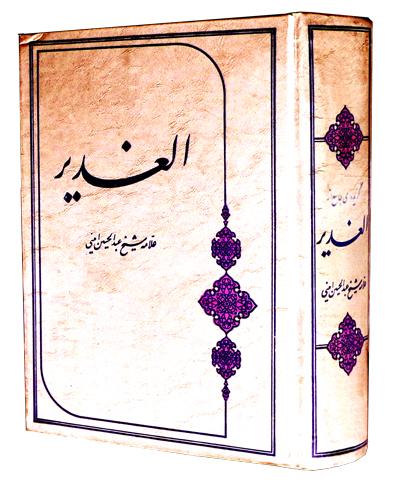 الغدیر
علامه شیخ عبدالحسین امینی
الغدیر
علامه شیخ عبدالحسین امینی